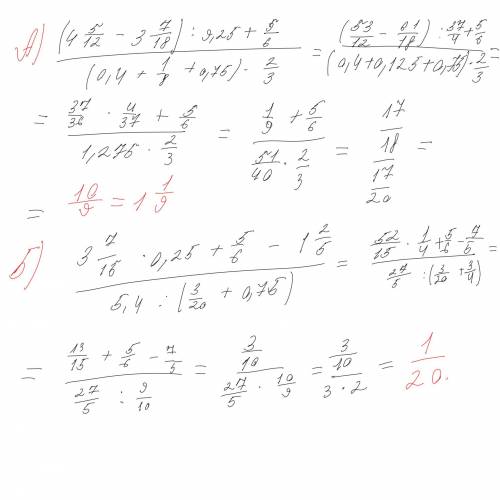 А) ((4 5/12 − 3 7/18) : 9,25 + 5/6) / ((0,4 + 1/8 + 0,75) · 2/3) = ((53/12 − 61/18) : 37/4 + 5/6) / ((0,4+0,125+0,75) · 2/3) =
= (37/36 · 4/37 + 5/6) / (1,275 · 2/3) = (1/9 + 5/6) / (51/40 · 2/3) = (17/18) / (17/20) =
= 10/9 = 1 1/9
Б) (3 7/15 · 0,25 + 5/6 − 1 2/5) / (5,4 : (3/20 + 0,75)) = (52/15 · 1/4 + 5/6 − 7/5) / (27/5 : (3/20 + 3/4)) =
= (13/15 + 5/6 − 7/5) / (27/5 : 9/10) = (3/10) / (27/5 · 10/9) = (3/10) / (3·2) = 1/20.